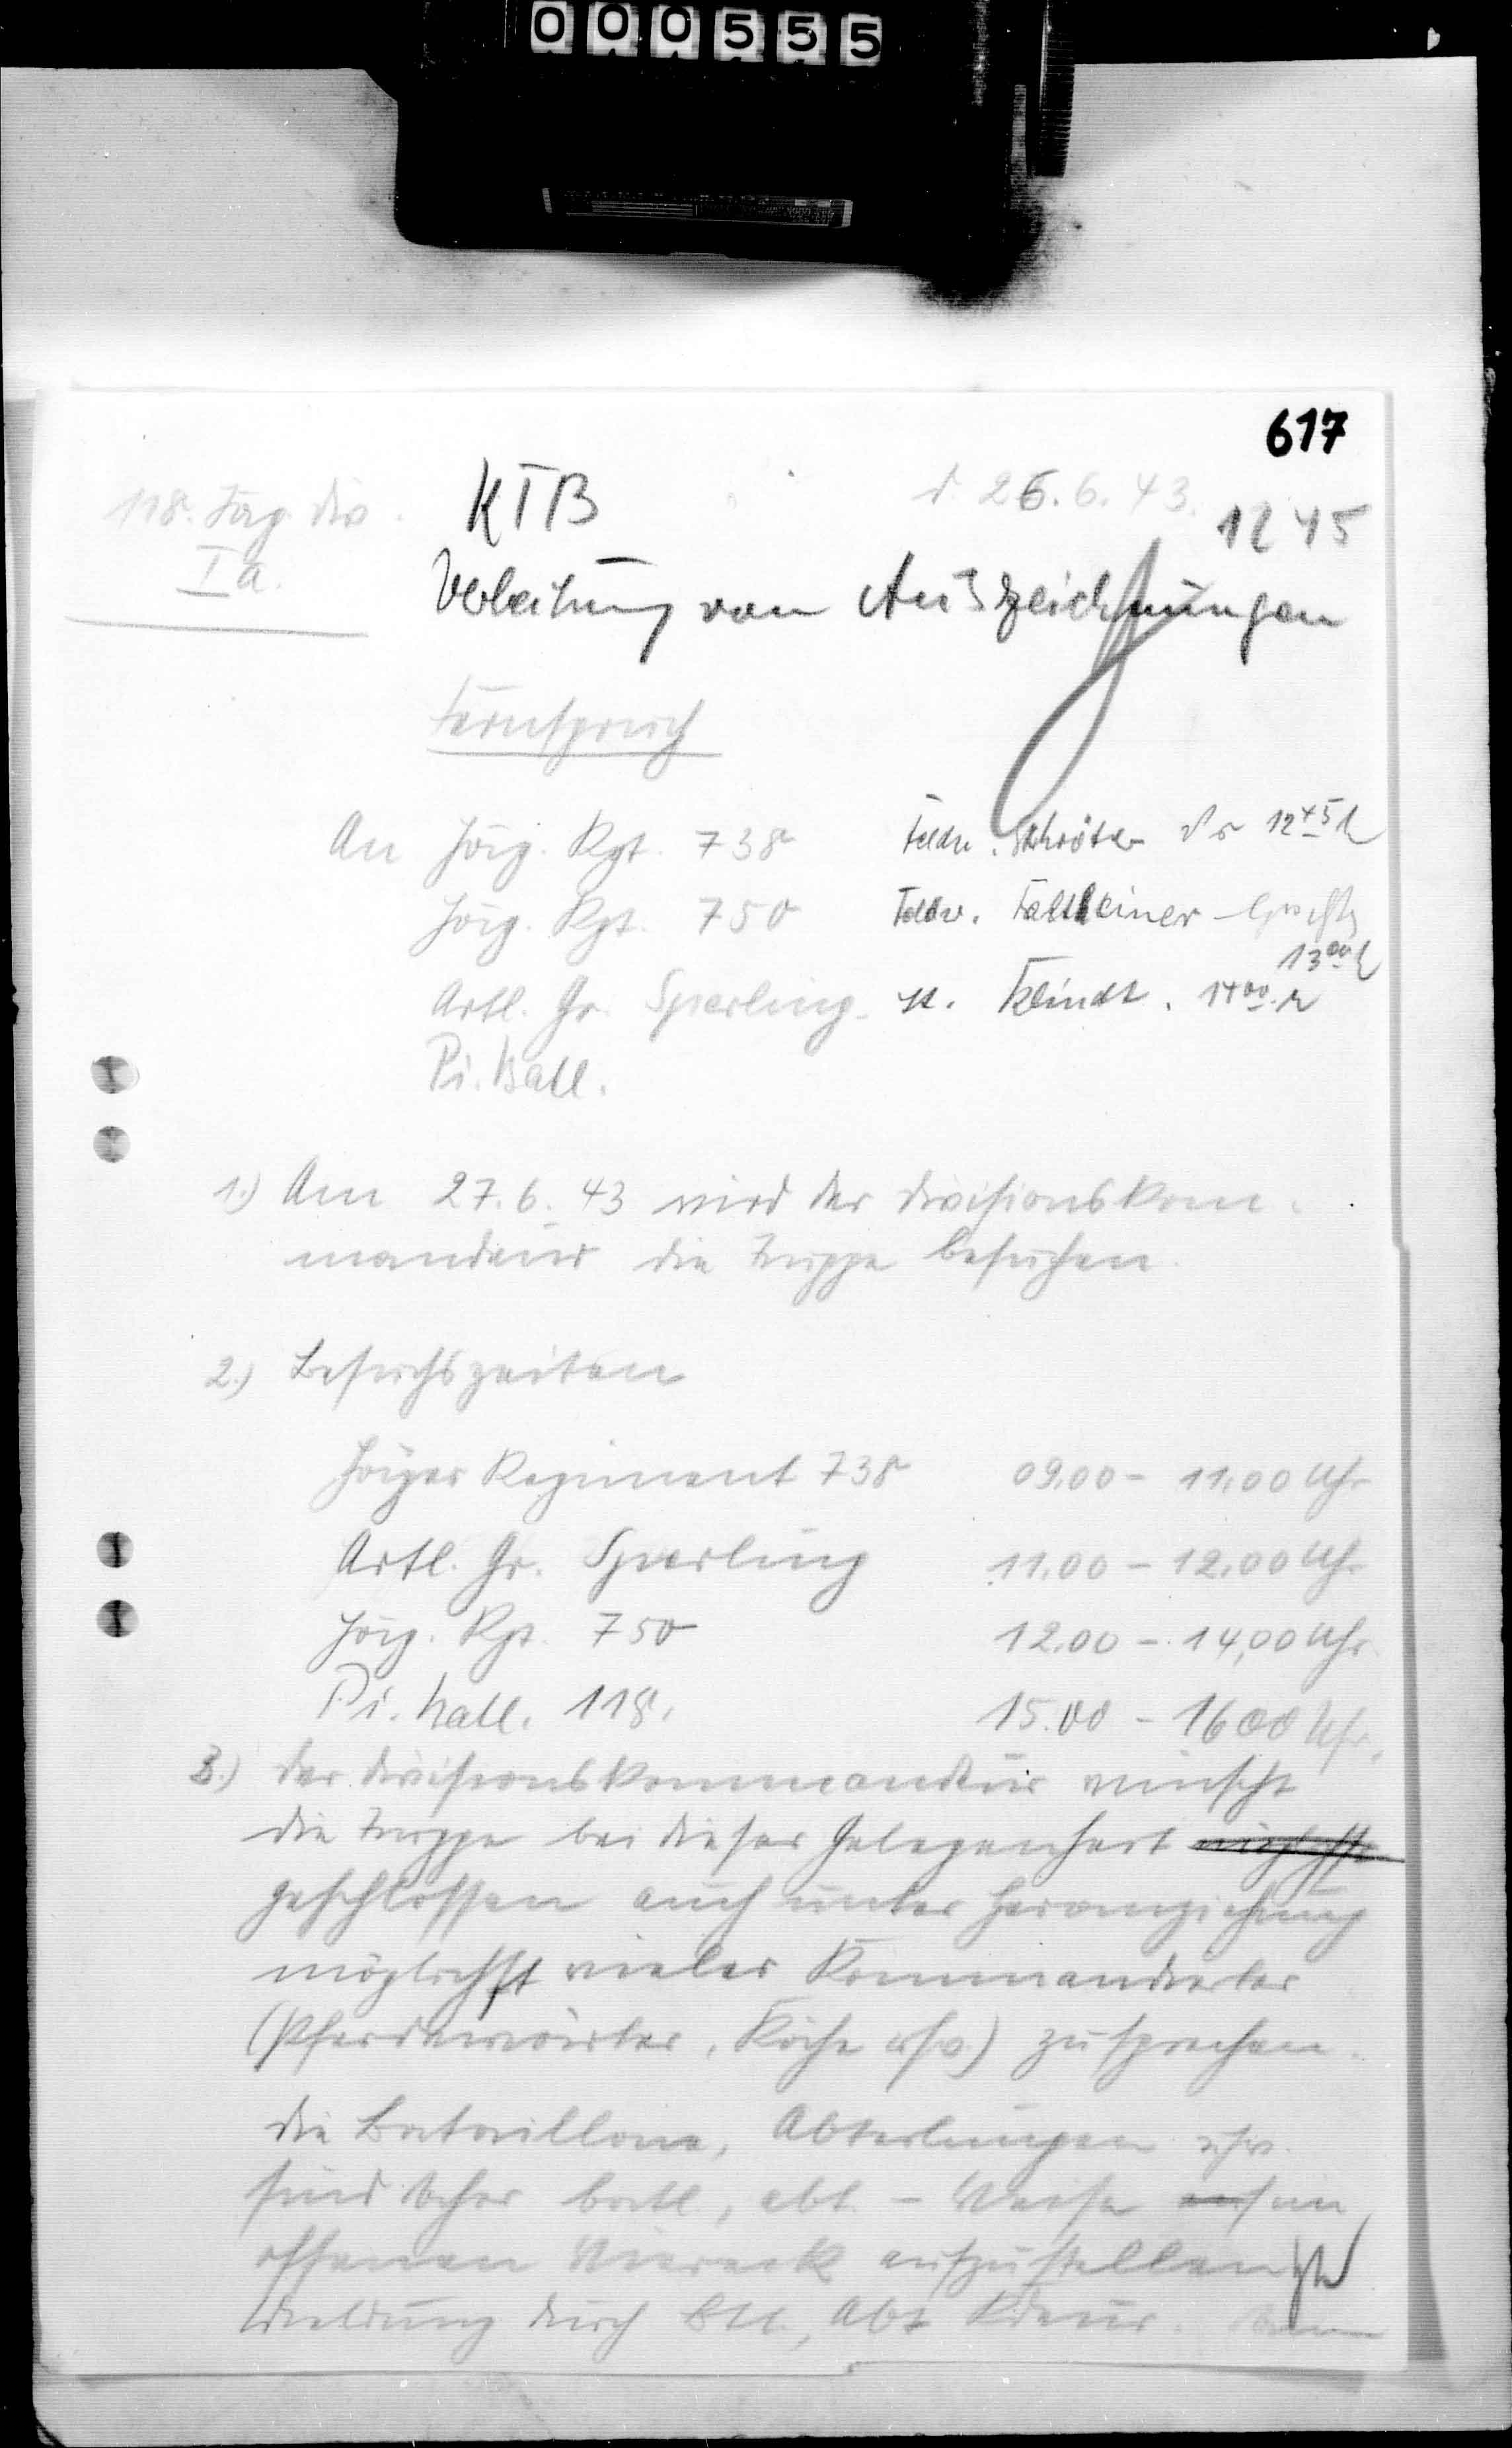 000555
617
118. Jäg. Div.
KTB
d. 26. 6. 43.
1245
Ia.
Verleihung von Auszeichnungen
Fernspruch
An Jäg. Rgt. 738 Feldw. Schröter 12⁴⁵ h
Jäg. Rgt. 750 Feldw.
13⁰⁰ h
Artl. Gr. Sperling 14⁰⁰
Pi. Batl.
1.) Am 27. 6. 43 wird der Divisionskom-
mandeur die Truppe besuchen.
2.) Besuchszeiten
Jäger Regiment 738 09.00 - 11.00 Uhr
Artl. Gr. Sperling 11.00 - 12.00 Uhr
Jäg. Rgt. 750 12.00 - 14.00 Uhr
Pi. Batl. 118. 15.00 - 1600 Uhr.
3.) Der Divisionskommandeur wünscht
die Truppe bei dieser Gelegenheit möglichst
geschlossen auch unter Heranziehung
möglichst vieler Kommandierter
(Pferdewärter, Köche usw.) zu sprechen.
Die Bataillone, Abteilungen usw.
sind daher batl., abt. - Weise im
offenen Viereck aufzustellen
Meldung durch Btl., Abt. Kdeur. Dann